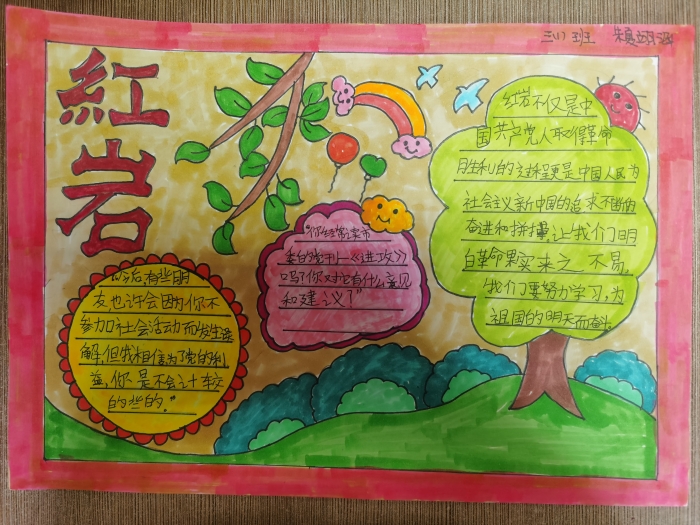 三(1)班
紅
岩
"以后有些朋
友也许会因为你不
参加社会活动而发生误
解,但我相信为了党的利
益,你是不会计较
的些的."
"你经常读市
委的党刊一《进攻》
吗?你对它有什么意见
和建议?"
红岩不仅是中
国共产党人取得革命
胜利的过程更是中国人民为
社会主义新中国的追求不断的
奋进和拼搏,让我们明
白革命果实来之不易,
我们要努力学习,为
祖国的明天而奋斗